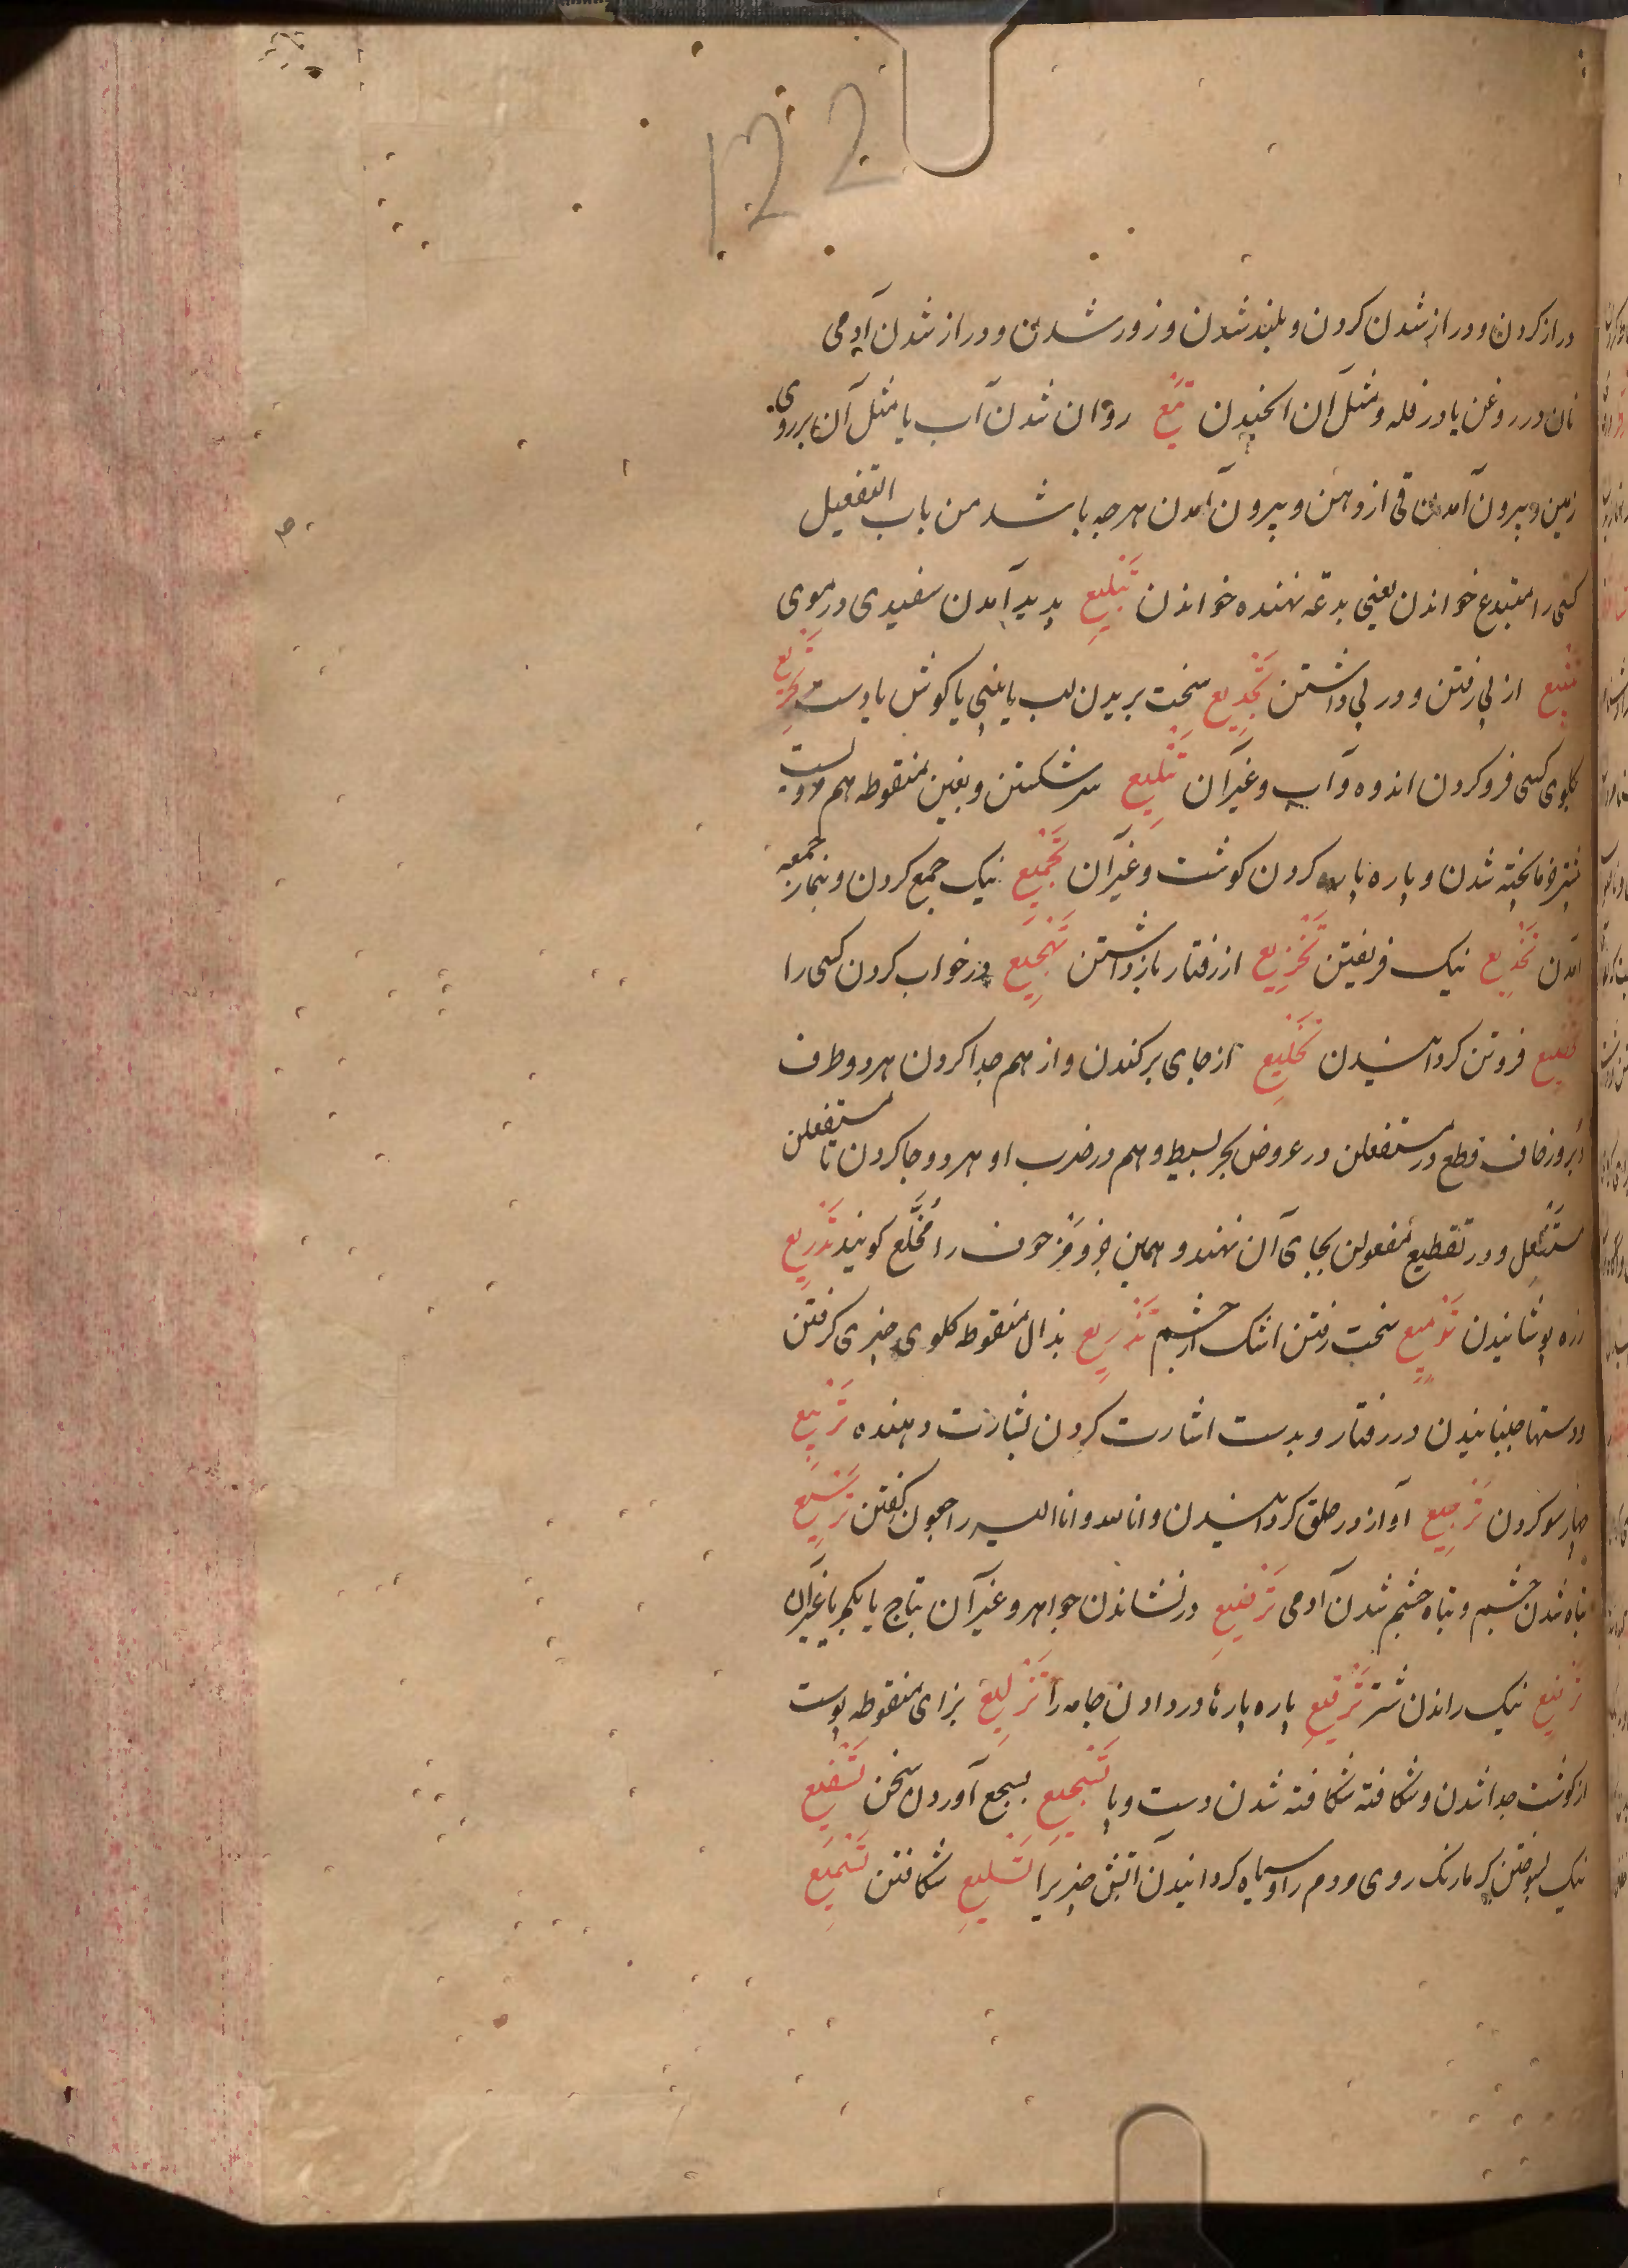 122
دراز کردن و دراز شدن کردن و بلند شدن و زور شدن و دراز شدن آدمی
نان در روغن یا در فله و مثل آن اکنیدن تمیع روان شدن آب یا مثل آن بر روی
زمین و بیرون آمدن قی از دهن و بیرون آمدن هرچه باشد من باب التفعیل
کسی را مبتدع خواندن یعنی بدعة نهنده خواندن تبلیع پدید آمدن سفیدی در موی
تتبیع از پی رفتن و در پی داشتن تجدیع سخت بریدن لب یا بینی یا کوش یا دست تجریع
کلوی کسی فرو کردن اندوه و آب و غیر آن تثلیع سر شکستن و بغین منقوطه هم
شدن و پاره پاره کردن کوشت و غیر آن تجمیع نیک جمع کردن و بنماز جمعه
آمدن تخدیع نیک فریفتن تخزیع از رفتار باز داشتن تهجیع در خواب کردن کسی را
تخضیع فروتن کردانیدن تخلیع از جای برکندن و از هم جدا کردن هر دو طرف
قطع در مستفعلن در عروض بحر بسیط و هم در ضرب او هر دو جا کردن تا مستفعلن
مستفعل و در تقطیع مفعولن بجای آن نهند و همین را مخلع کویند تدریع
زره پوشانیدن تدمیع سخت رفتن اشک از چشم تذریع بذال منقوطه کلوی چیزی کرفتن
و دستها جنبانیدن در رفتار و بدست اشارت کردن بشارت دهنده تربیع
چهار سو کردن ترجیع آواز در حلق کردانیدن و انا لله و انا الیه راجعون گفتن ترسیع
تباه شدن چشم و تباه چشم شدن آدمی ترصیع درنشاندن جواهر و غیر آن بتاج یا بکمر یا غیر آن
ترفیع نیک راندن شتر ترقیع پاره پارها در دادن جامه را تزلیع بزای منقوطه پوست
از کوشت جدا شدن و شکافته شکافته شدن دست و پا تسجیع بسجع آوردن سخن تسفیع
نیک بسوختن کرما رنک روی مردم را و سیاه کردانیدن آتش چیزیرا تسلیع شکافتن تسمیع